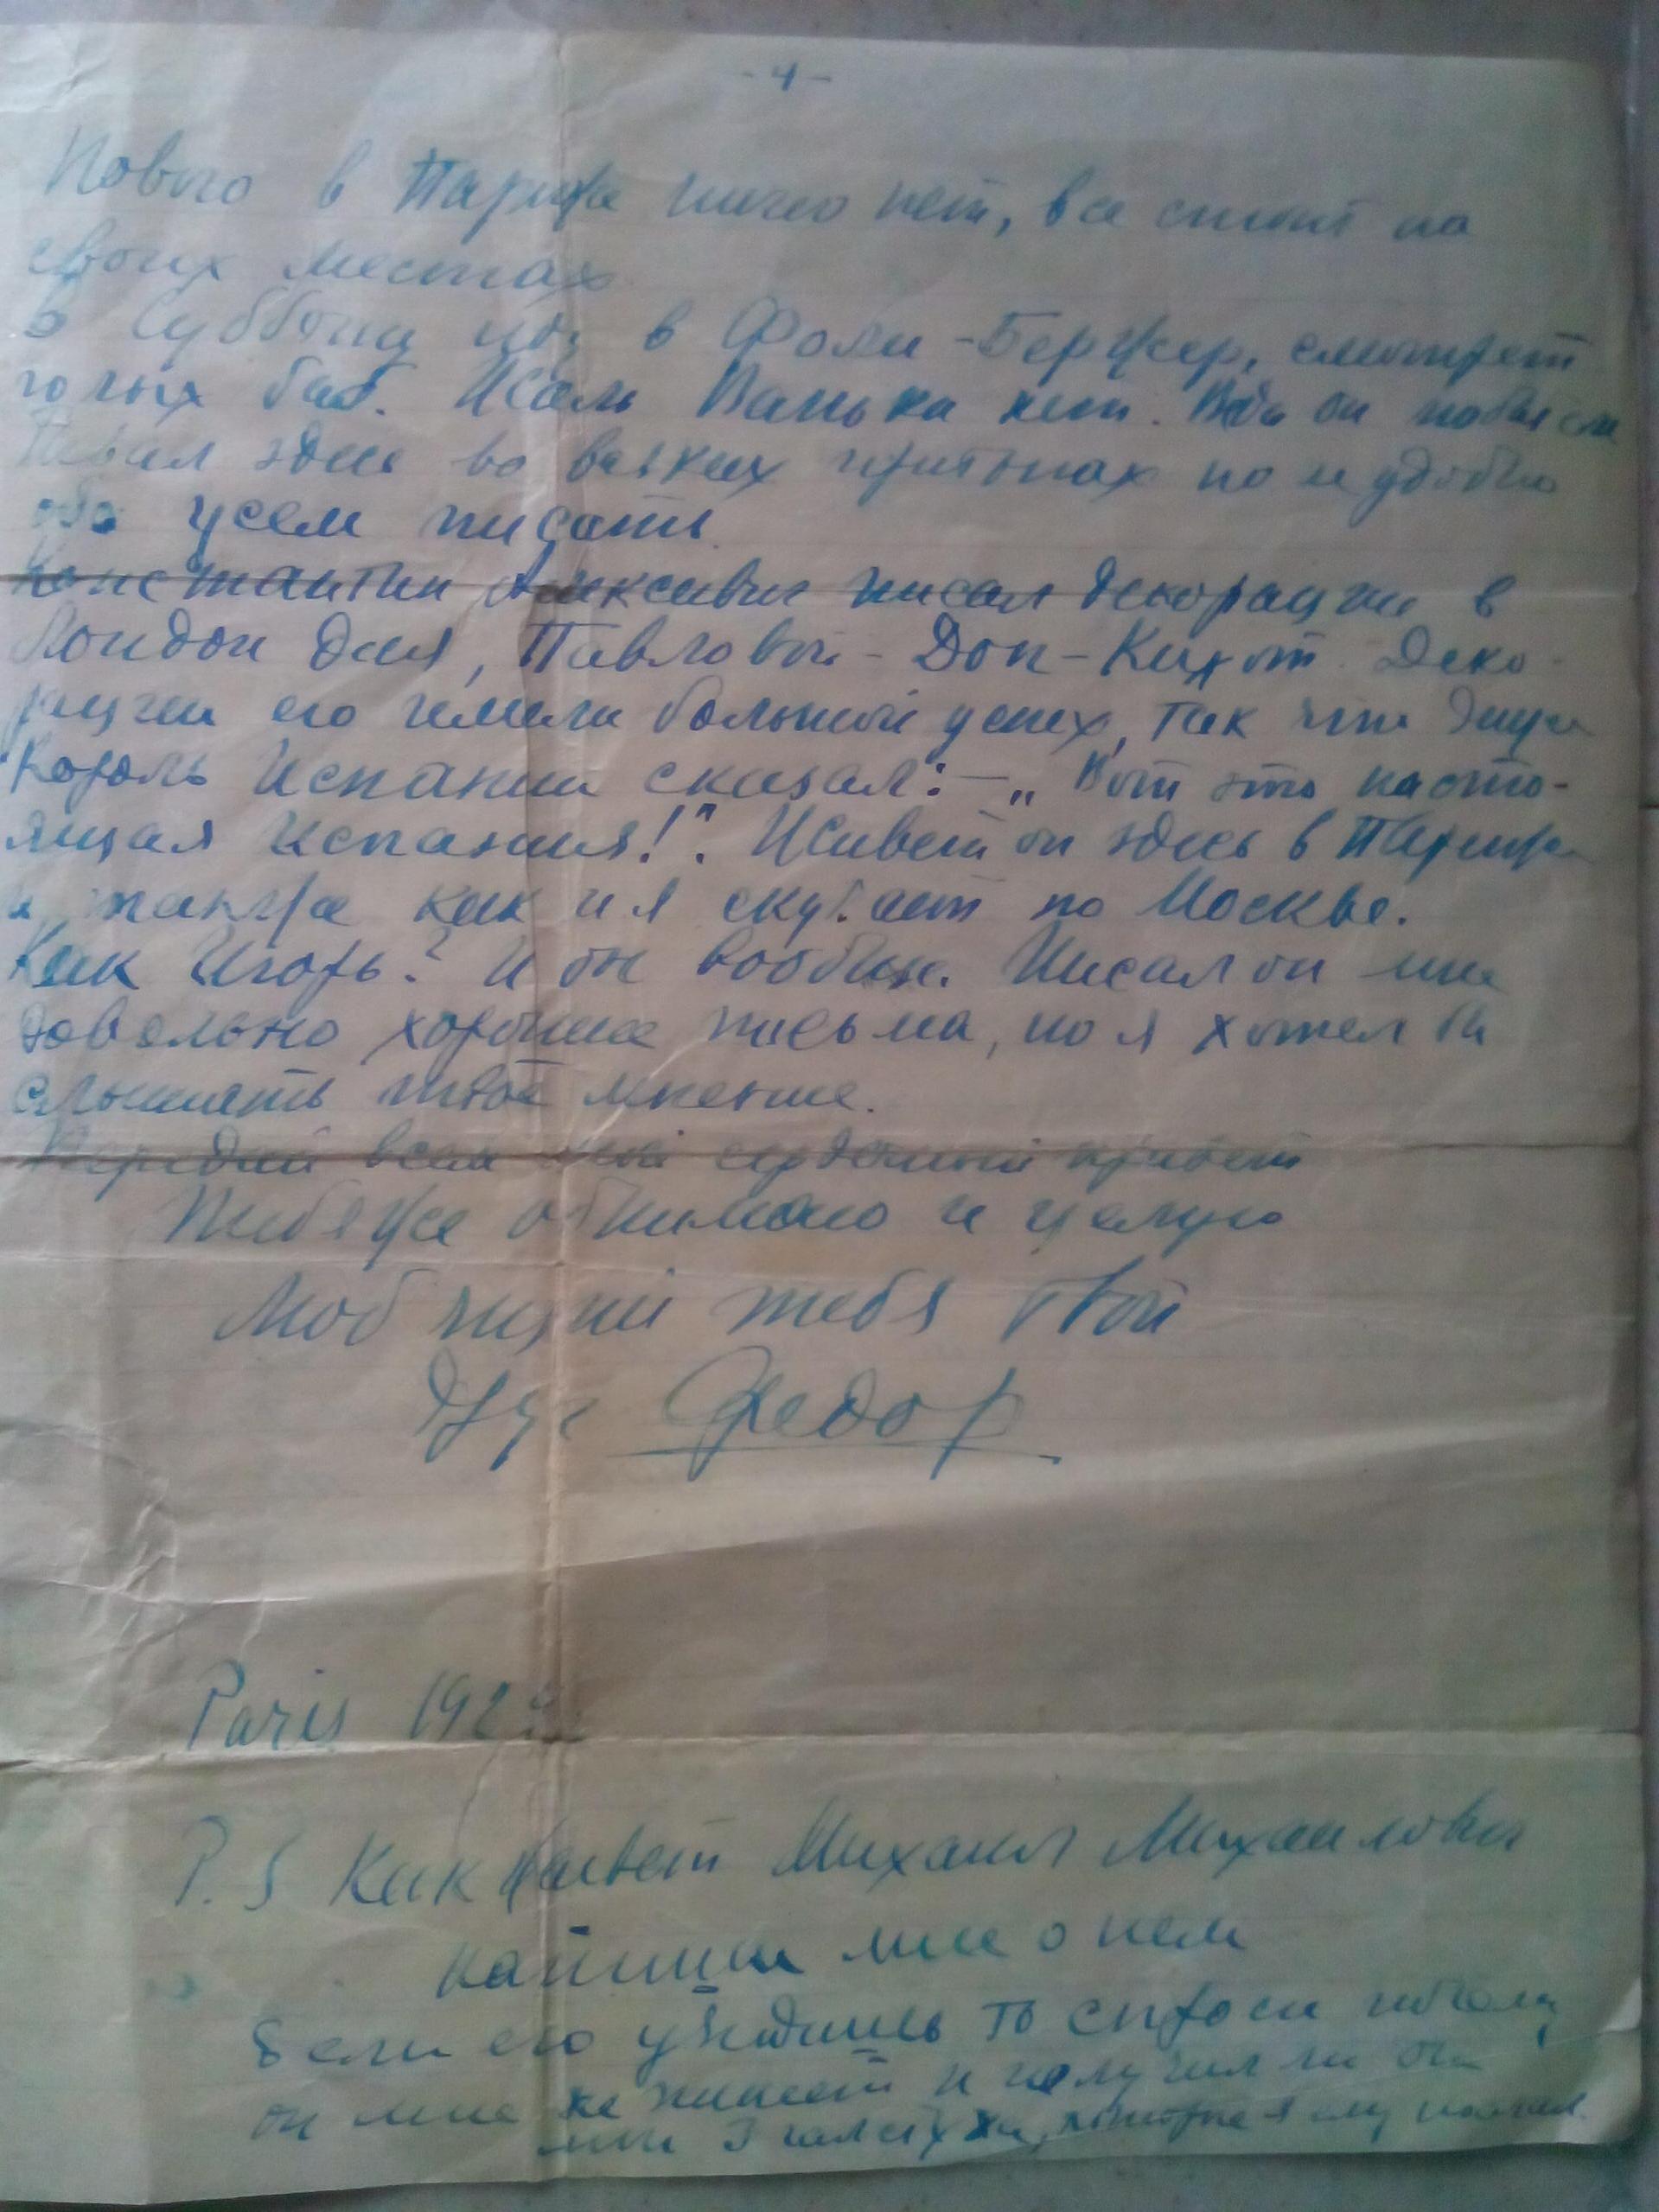 - 4 -
Нового в Париже ничего нет, все стоит на
своих местах
в Субботу иду в Фоли-Бержер, смотреть
голых баб. Жаль Ванька нет. Вот бы
здесь во всяких притонах но неудобно
обо усем писать.
Константин Алексеевич писал декорации в
Лондон для Павловой - Дон-Кихот. Деко-
рации его имели большой успех, так что даже
Король Испании сказал: - „Вот это насто-
ящая Испания!". Живет он здесь в Париже
и также как и я скучает по Москве.
Как Игорь? И он вообще. Писал он мне
довольно хорошие письма, но я хотел бы
слышать твое мнение.
Передай всем мой сердечный привет
Тебя же обнимаю и целую
Любящий тебя твой
Друг Федор
Paris 192
P. S Как живет Михаил Михайлович
напиши мне о нем
Если его увидишь то спроси почему
он мне не пишет и получил ли он
мои 3 которые я ему послал.